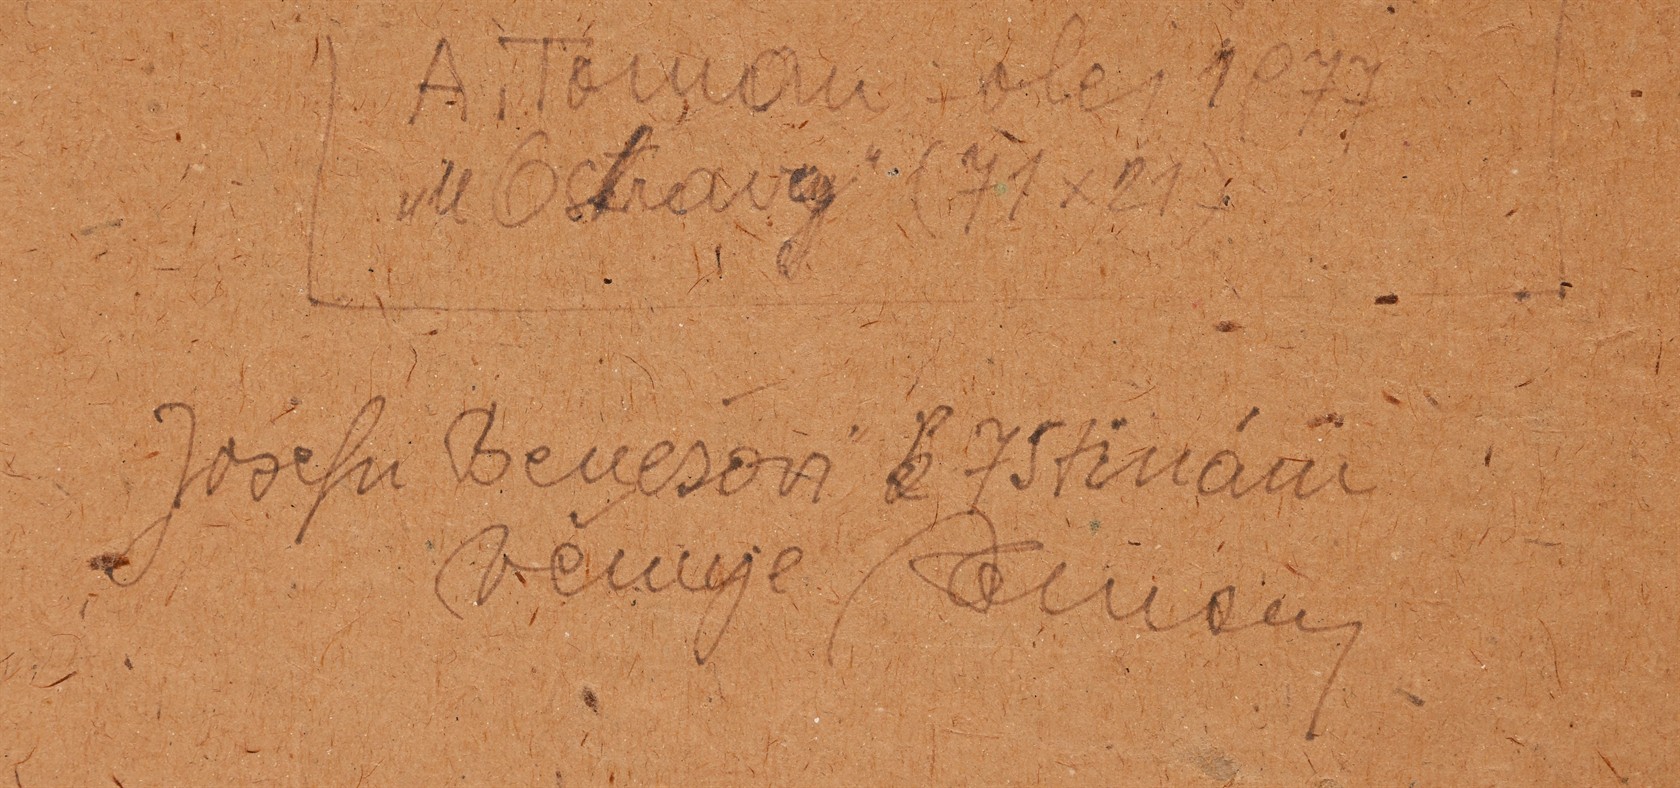 A. Toman - olej 1977
„U Ostravy“ (71 x 21)
Josefu Benešovi k 75tinám
věnuje Toman